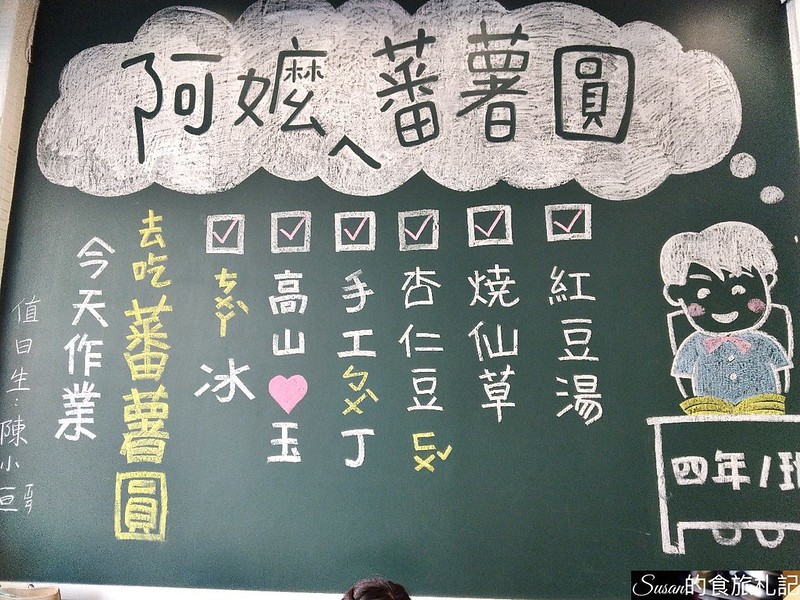 阿嬤ㄟ蕃薯圓
紅豆湯
燒仙草
杏仁豆ㄈㄨˇ
手工ㄅㄨˋ丁
高山♥玉
ㄘㄨㄚˋ冰
去吃蕃薯圓
今天作業
值日生：陳小
四年1班
Susan的食旅札記